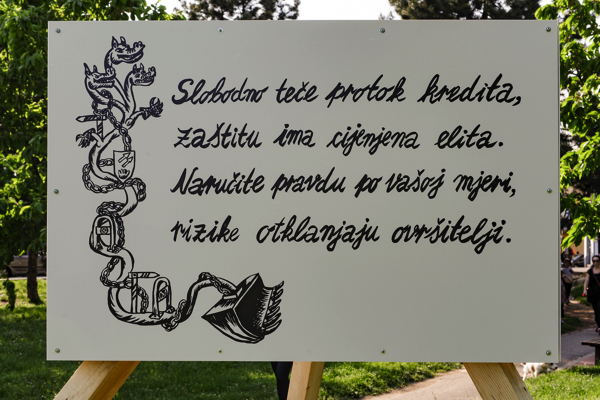 Slobodno teče protok kredita,
zaštitu ima cijenjena elita.
Naručite pravdu po vašoj mjeri,
rizike otklanjaju ovršitelji.